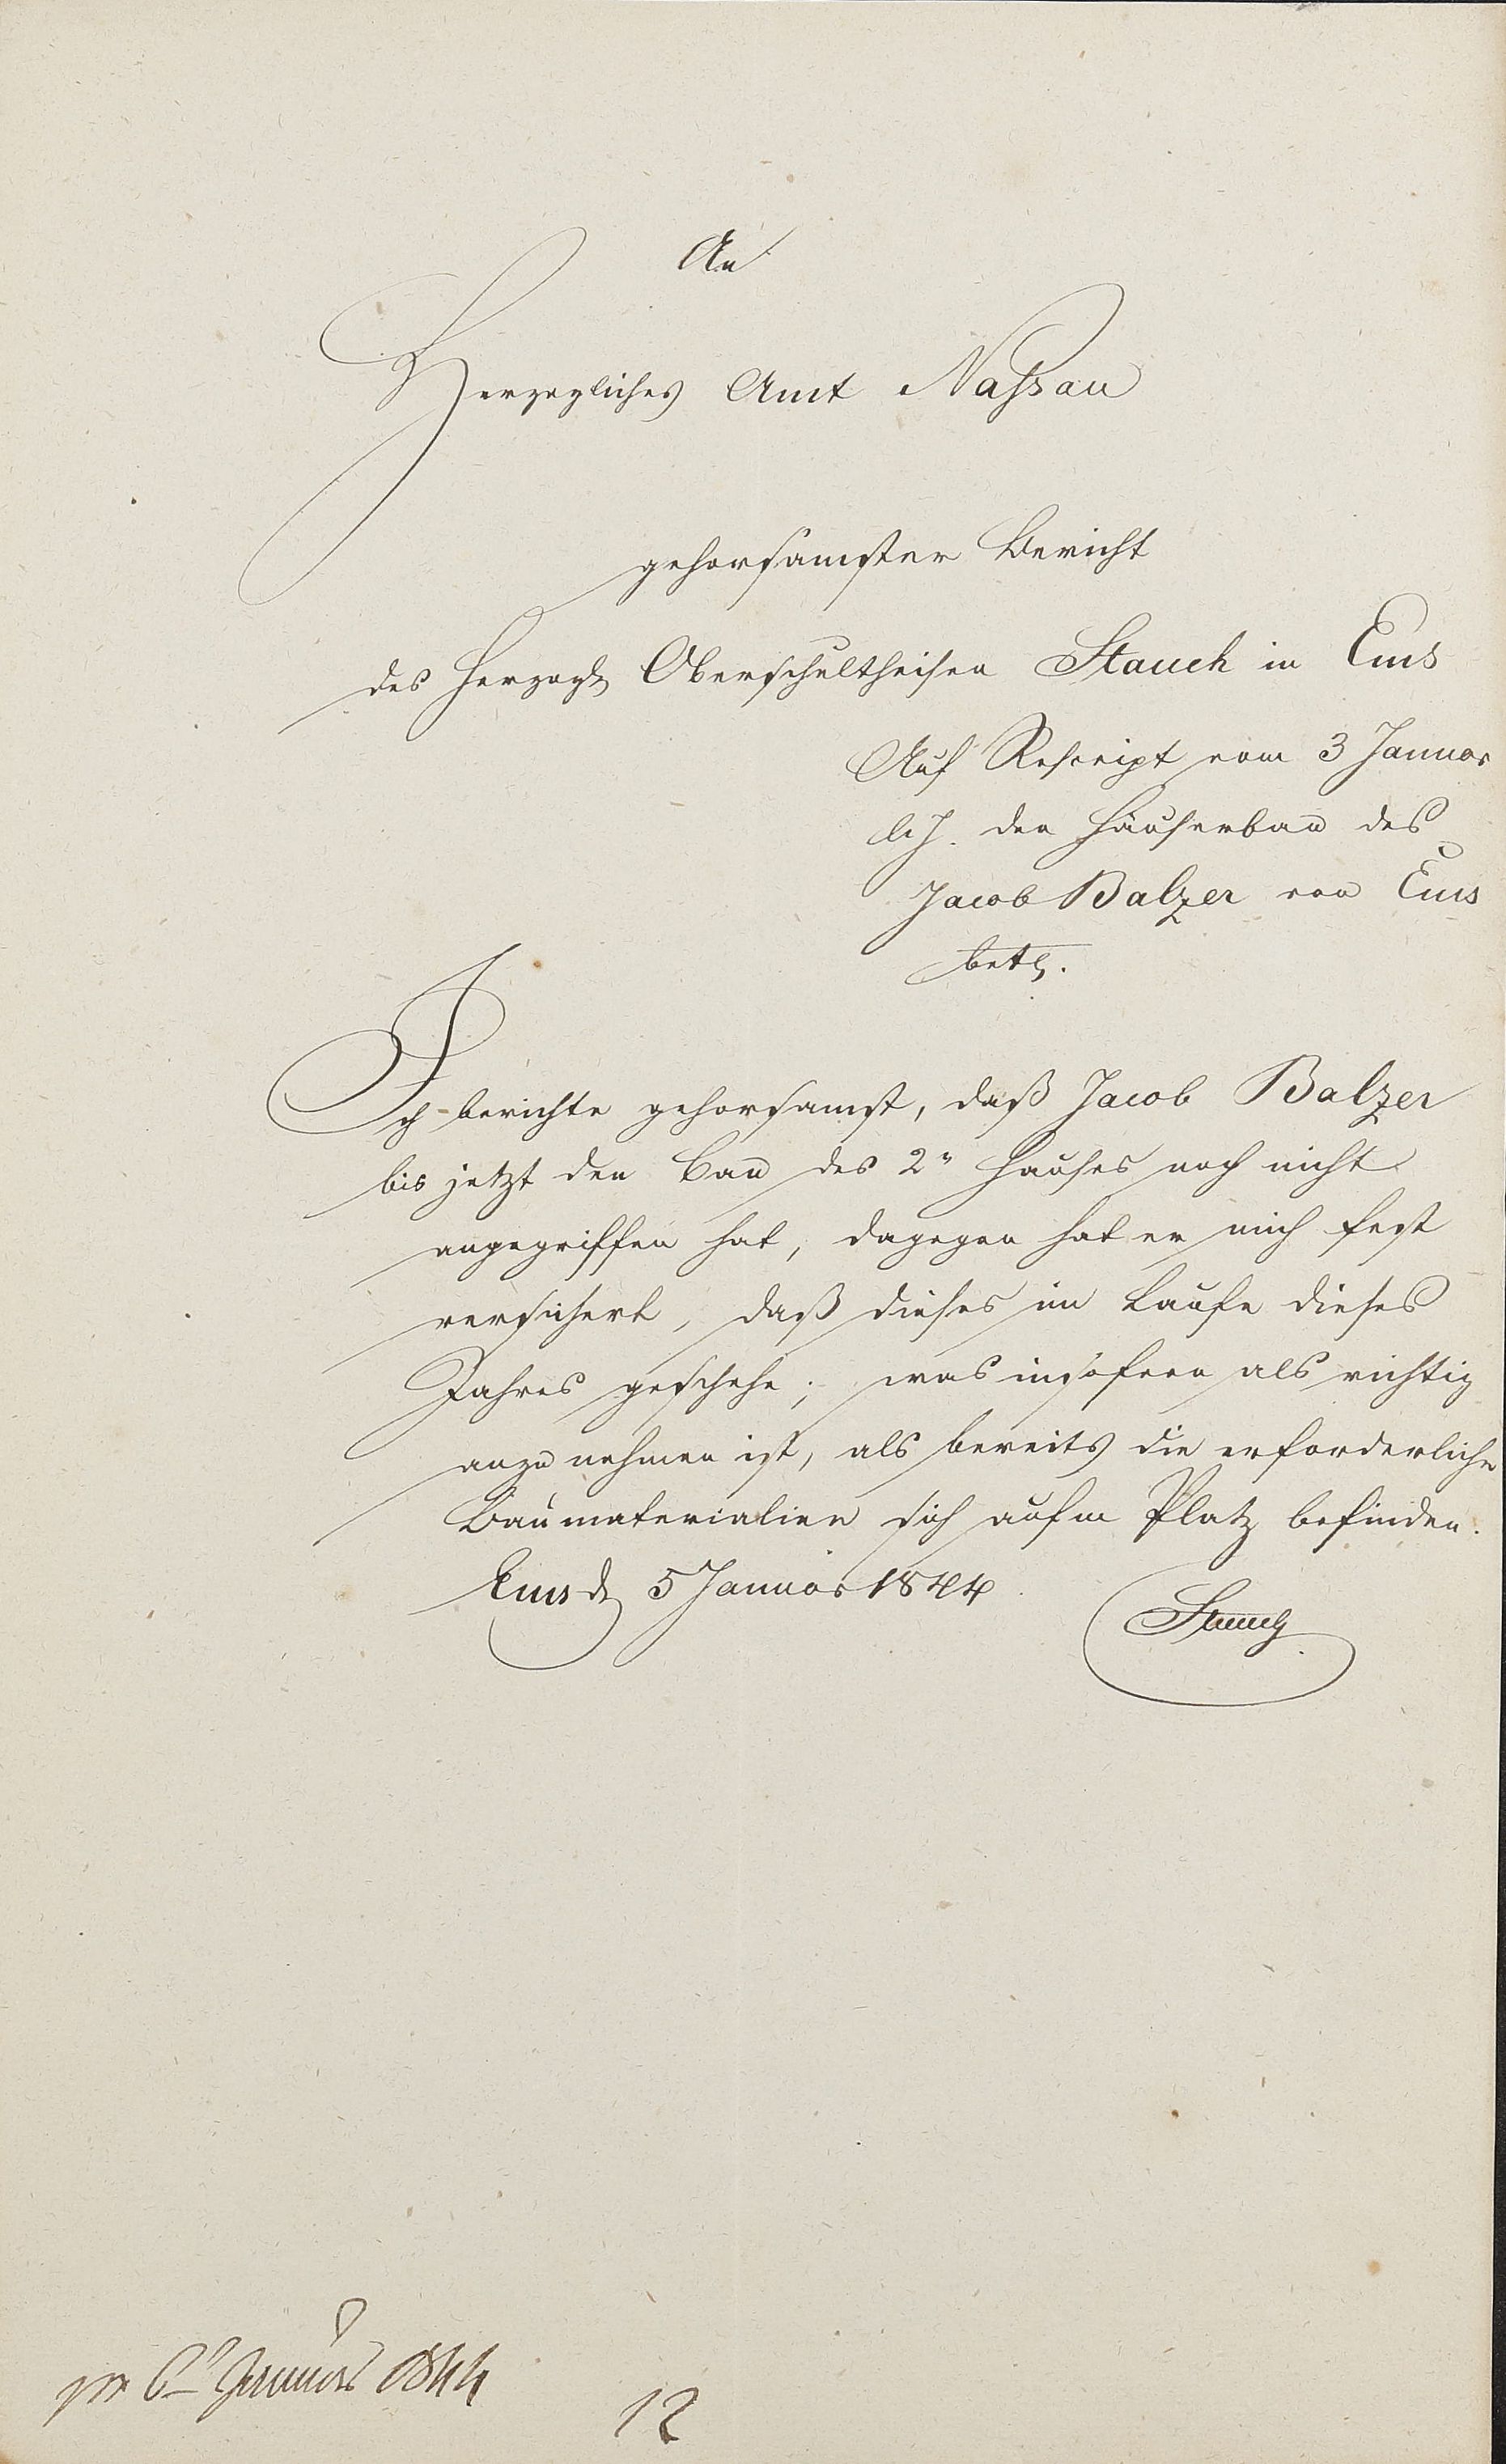 An
Herzogliches Amt Naßau
gehorsamster Bericht
des Herzogl. Oberschultheisen Stauch in Ems
Auf Rescript vom 3 Januar
d. J. den Häuserbau des
Jacob Balzer von Ems
betr.
Ich berichte gehorsamst, daß Jacob Balzer
bis jetzt den Bau des 2n Hauses noch nicht
angegriffen hat, dagegen hat er mich fest
versichert, daß dieses im Laufe dieses
Jahres geschehe; was insofern als richtig
anzu nehmen ist, als bereits die erforderliche
Baumaterialien sich aufm Platz befinden.
Ems d. 5 Januar 1844
Stauch
pr 6n Januar 1844
12